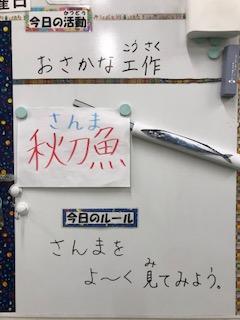 曜日
かつどう
今日の活動
こうさく
おさかな工作
さんま
秋刀魚
今日のルール
さんまを
み
よ〜く見てみよう。